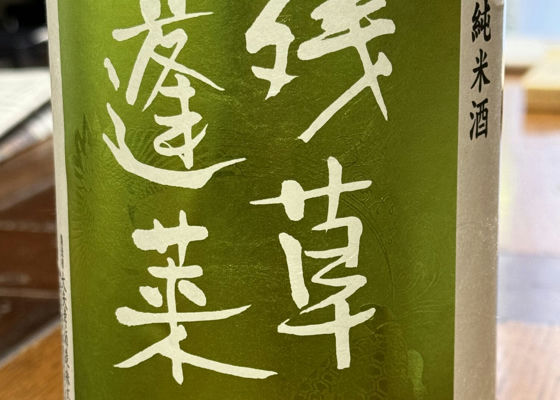 残草
蓬莱
純米酒